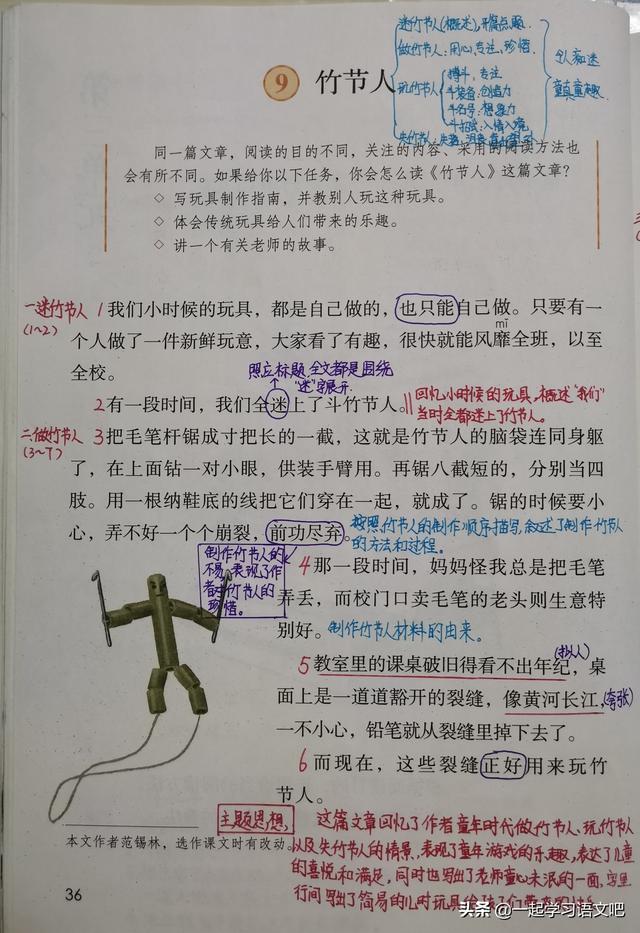 迷竹节人(概述),开篇点题.
做竹节人:用心,专注,珍惜
玩竹节人
搏斗,专注
斗装备:创造力
斗名号:想象力
斗招法:入情入境
失竹节人:失落,沮丧
令人痴迷
童真童趣
9 竹节人
同一篇文章,阅读的目的不同,关注的内容、采用的阅读方法也
会有所不同。如果给你以下任务,你会怎么读《竹节人》这篇文章?
◇ 写玩具制作指南,并教别人玩这种玩具。
◇ 体会传统玩具给人们带来的乐趣。
◇ 讲一个有关老师的故事。
一迷竹节人
(1~2)
1我们小时候的玩具,都是自己做的,也只能自己做。只要有一
mǐ
个人做了一件新鲜玩意,大家看了有趣,很快就能风靡全班,以至
全校。
照应标题,全文都是围绕
“迷”字展开.
2有一段时间,我们全迷上了斗竹节人。
回忆小时候的玩具,概述“我们”
当时全都迷上了竹节人。
二做竹节人
(3~7)
3把毛笔杆锯成寸把长的一截,这就是竹节人的脑袋连同身躯
了,在上面钻一对小眼,供装手臂用。再锯八截短的,分别当四
肢。用一根纳鞋底的线把它们穿在一起,就成了。锯的时候要小
心,弄不好一个个崩裂,前功尽弃。
按照竹节人的制作顺序描写,叙述了制作竹节人
的方法和过程。
制作竹节人的
不易,表现了作
者对竹节人的
珍惜。
4那一段时间,妈妈怪我总是把毛笔
弄丢,而校门口卖毛笔的老头则生意特
别好。
制作竹节人材料的由来。
5教室里的课桌破旧得看不出年纪,桌
(拟人)
面上是一道道豁开的裂缝,像黄河长江,
(夸张)
一不小心,铅笔就从裂缝里掉下去了。
6而现在,这些裂缝正好用来玩竹
节人。
主题思想,
这篇文章回忆了作者童年时代做竹节人、玩竹节人
以及失竹节人的情景,表现了童年游戏的乐趣,表达了儿童
的喜悦和满足,同时也写出了老师童心未泯的一面,字里
行间写出了简易的儿时玩具给孩子们带来的
本文作者范锡林,选作课文时有改动。
36
头条 @一起学习语文吧